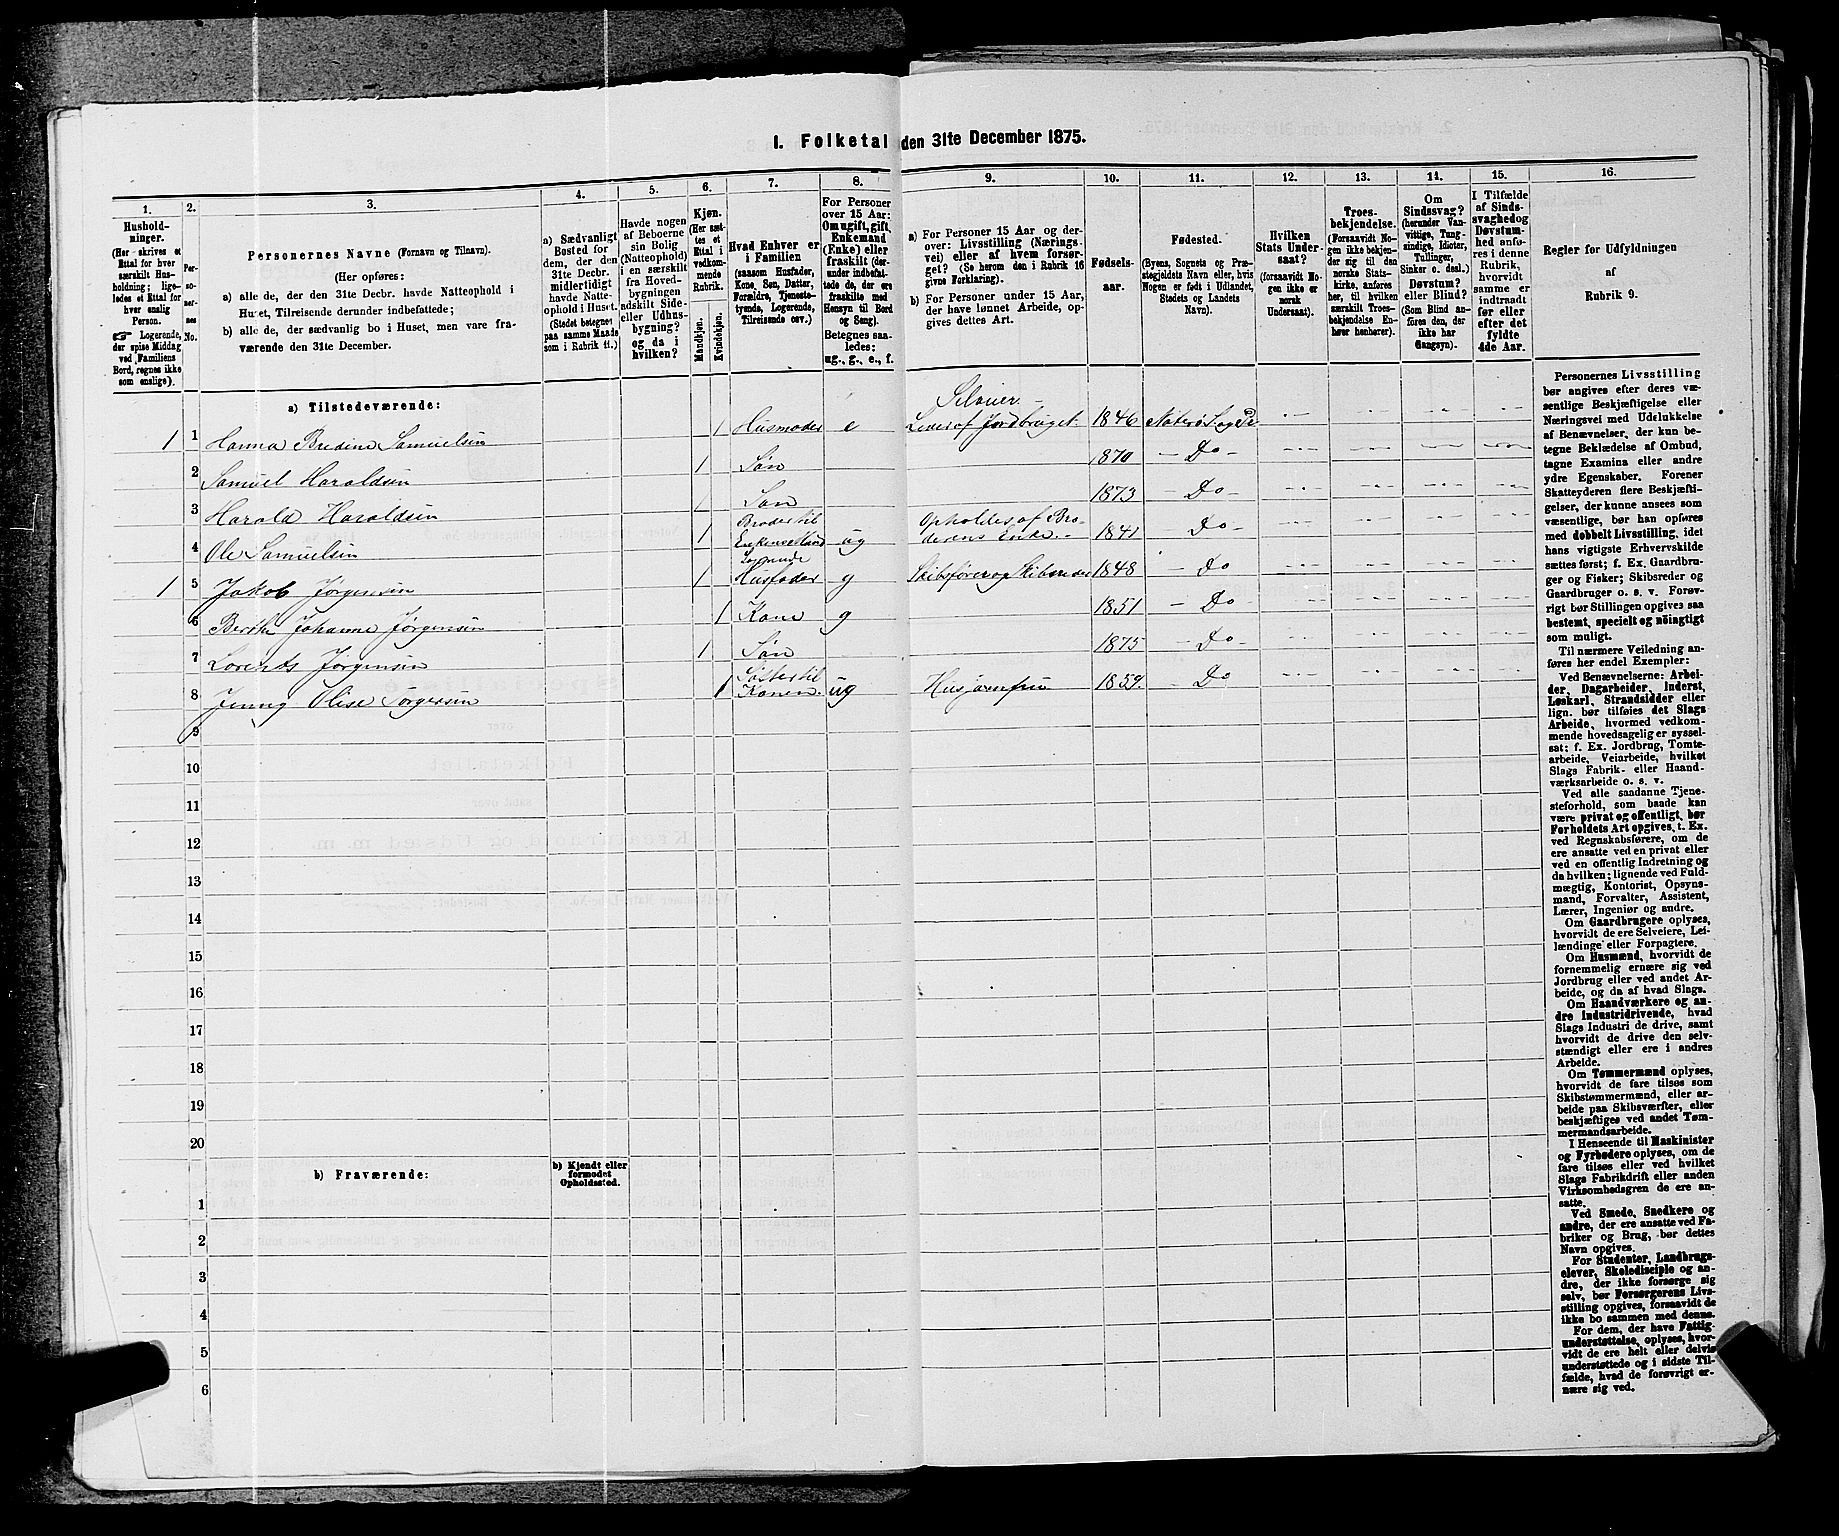 I. Folketal den 31te December 1875.
1.
Hushold-
ninger.
(Her skrives et
Ettal for hver
særskilt Hus-
holdning; lige-
ledes et Ettal for
hver enslig
Person.
Logerende,
der spise Middag
ved Familiens
Bord, regnes ikke
som enslige).
2.
Per-
so-
ner-
nes
No.
3.
Personernes Navne (Fornavn og Tilnavn).
(Her opføres:
a) alle de, der den 31te Decbr. havde Natteophold i
Huset, Tilreisende derunder indbefattede;
b) alle de, der sædvanlig bo i Huset, men vare fra-
værende den 31te December.
4.
a) Sædvanligt
Bosted for
dem, der den
31te Decbr.
midlertidigt
havde Natte-
ophold i Huset.
(Stedet betegnes
paa samme Maade
som i Rubrik 11.)
5.
Havde nogen
af Beboerne
sin Bolig
(Natteophold)
i en særskilt
fra Hoved-
bygningen
adskilt Side-
eller Udhus-
bygning?
og da i
hvilken?
6.
Kjøn.
(Her sæt-
tes et
Ettal i
vedkom-
mende
Rubrik.
Mandkjøn.
Kvindekjøn.
7.
Hvad Enhver er
i Familien
(saasom Husfader,
Kone, Søn, Datter,
Forældre, Tjeneste-
tyende, Logerende,
Tilreisende osv.)
8.
For Personer
over 15 Aar:
Om ugift, gift,
Enkemand
(Enke) eller
fraskilt (der-
under indbefat-
tede de, der ere
fraskilte med
Hensyn til Bord
og Seng).
Betegnes saa-
ledes:
ug., g., e., f.
9.
a) For Personer 15 Aar og der-
over: Livsstilling (Nærings-
vei) eller af hvem forsør-
get? (Se herom den i Rubrik 16
givne Forklaring).
b) For Personer under 15 Aar,
der have lønnet Arbeide, op-
gives dettes Art.
10.
Fødsels-
aar.
11.
Fødested.
(Byens, Sognets og Præ-
stegjeldets Navn eller, hvis
Nogen er født i Udlandet,
Stedets og Landets
Navn).
12.
Hvilken
Stats Under-
saat?
(forsaavidt No-
gen ikke er
norsk
Undersaat).
13.
Troes-
bekjendelse.
(Forsaavidt No-
gen ikke bekjen-
der sig til den
norske Stats-
kirke, anføres
her, til hvilken
særskilt Troes-
bekjendelse En-
hver henhører).
14.
Om
Sindssvag?
(herunder Van-
vittige, Tung-
sindige, Idioter,
Tullinger,
Sinker o. desl.)
Døvstum?
eller Blind?
(Som Blind an-
føres den, der
ikke har
Gangsyn).
15.
I Tilfælde
af Sinds-
svaghed og
Døvstum-
hed anfø-
res i denne
Rubrik,
hvorvidt
samme er
indtraadt
før eller
efter det
fyldte
4de Aar.
16.
Regler for Udfyldningen
af
Rubrik 9.
a) Tilstedeværende:
1 1 Hanna Bredine Samuelsen 1 Husmoder e Selveier - Leder af Jordbruget. 1846 Nøterø S. og Pr
2 Samuel Haraldsen 1 Søn 1870 - Do -
3 Harald Haraldsen 1 Søn 1873 - Do -
4 Ole Samuelsen 1 Broder til Enkens Mand ug Opholdes af Bro-derens Enke.- 1841 - Do -
1 5 Jakob Jørgensen 1 Logerende Husfader g Skibsfører og Skibsreder 1848 - Do
6 Berthe Johanne Jørgensen 1 Kone g 1851 - Do
7 Lorents Jørgensen 1 Søn 1875 - Do
8 Jenny Olise Jørgensen 1 Søster til Konen. ug Husjomfru 1859. - Do
9
10
11
12
13
14
15
16
17
18
19
20
b) Fraværende:
b) Kjendt eller
formodet
Opholdssted.
1
2
3
4
5
6
Personernes Livsstilling
bør angives efter deres væ-
sentlige Beskjæftigelse eller
Næringsvei med Udelukkelse
af Benævnelser, der kun be-
tegne Beklædelse af Ombud,
tagne Examina eller andre
ydre Egenskaber. Forener
Skatteyderen flere Beskjæfti-
gelser, der kunne ansees som
væsentlige, bør han opføres
med dobbelt Livsstilling, idet
hans vigtigste Erhvervskilde
sættes først; f. Ex. Gaardbru-
ger og Fisker; Skibsreder og
Gaardbruger o. s. v. Forøv-
rigt bør Stillingen opgives saa
bestemt, specielt og nöiagtigt
som muligt.
Til nærmere Veiledning an-
føres her endel Exempler:
Ved Benævnelserne: Arbei-
der, Dagarbeider, Inderst,
Løskarl, Strandsidder eller
lign. bør tilføies det Slags
Arbeide, hvormed vedkom-
mende hovedsagelig er syssel-
sat; f. Ex. Jordbrug, Tomte-
arbeide, Veiarbeide, hvilket
Slags Fabrik- eller Haand-
værksarbeide o. s. v.
Ved alle saadanne Tjene-
steforhold, som baade kan
være privat og offentligt, bør
Forholdets Art opgives, t. Ex.
ved Regnskabsførere, om de
ere ansatte ved en privat eller
ved en offentlig Indretning og
da hvilken; lignende ved Fuld-
mægtig, Kontorist, Opsyns-
mand, Forvalter, Assistent,
Lærer, Ingeniør og andre.
Om Gaardbrugere oplyses,
hvorvidt de ere Selveiere, Lei-
lændinge eller Forpagtere.
Om Husmænd, hvorvidt de
fornemmelig ernære sig ved
Jordbrug eller ved andet Ar-
beide, og da af hvad Slags.
Om Haandværkere og an-
dre Industridrivende, hvad
Slags Industri de drive, samt
hvorvidt de drive den selv-
stændigt eller ere i andres
Arbeide.
Om Tømmermænd oplyses,
hvorvidt de fare tilsøs som
Skibstømmermænd, eller ar-
beide paa Skibsværfter, eller
beskjæftiges ved andet Tøm-
mermandsarbeide.
I Henseende til Maskinister
og Fyrbødere oplyses, om de
fare tilsøs eller ved hvilket
Slags Fabrikdrift eller anden
Virksomhedsgren de ere an-
satte.
Ved Smede, Snedkere og
andre, der ere ansatte ved Fa-
briker og Brug, bør dettes
Navn opgives.
For Studenter, Landbrugs-
elever, Skoledisciple og an-
dre, der ikke forsørge sig
selv, bør Forsørgerens Livs-
stilling opgives, forsaavidt de
ikke bo sammen med denne.
For dem, der have Fattig-
understøttelse, oplyses, hvor-
vidt de ere helt eller delvis
understøttede og i sidste Til-
fælde, hvad de forøvrigt er-
nære sig ved.